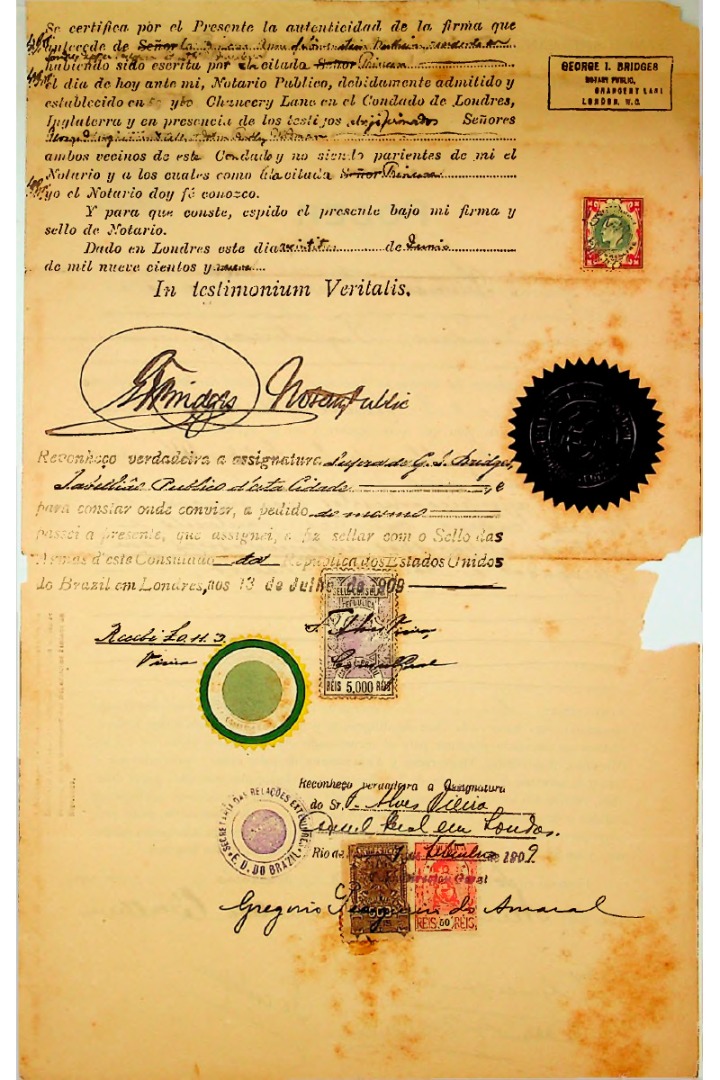 Se certifica por el Presente la autenticidad de la firma que
antecede de Señor la
habiendo sido escrita por la citada Señor Princesa
el dia de hoy ante mi, Notario Publico, debidamente admitido y
establecido en Chancery Lane en el Condado de Londres,
Inglaterra y en presencia de los testigos Señores
ambos vecinos de este Condado y no siendo parientes de mi el
Notario y a los cuales como á la citada Señor Princesa
yo el Notario doy fé conozco.
Y para que conste, espido el presente bajo mi firma y
sello de Notario.
Dado en Londres este dia de Junio
de mil nueve cientos y nueve
In testimonium Veritatis.
GEORGE I. BRIDGER
NOTARY PUBLIC,
CHANCERY LANE
LONDON. W.C.
G I Bridger Notary Public
Reconheço verdadeira a assignatura supra de G. I. Bridger,
Tabellião Publico d'esta Cidade , e
para constar onde convier, a pedido do mesmo
passei a presente, que assignei, e fiz sellar com o Sello das
Armas d'este Consulado da Republica dos Estados Unidos
do Brazil em Londres, aos 13 de Julho de 1909
Recebi
Vieira
F. Alves Vieira
Consul Geral
REIS 5.000 REIS
SECRETARIA DAS RELAÇÕES EXTERIORES
E. U. DO BRAZIL
Reconheço verdadeira a Assignatura
do Sr. F. Alves Vieira
Consul Geral em Londres.
Rio de de 1909
Director Geral
REIS 50 REIS
Gregorio do Amaral